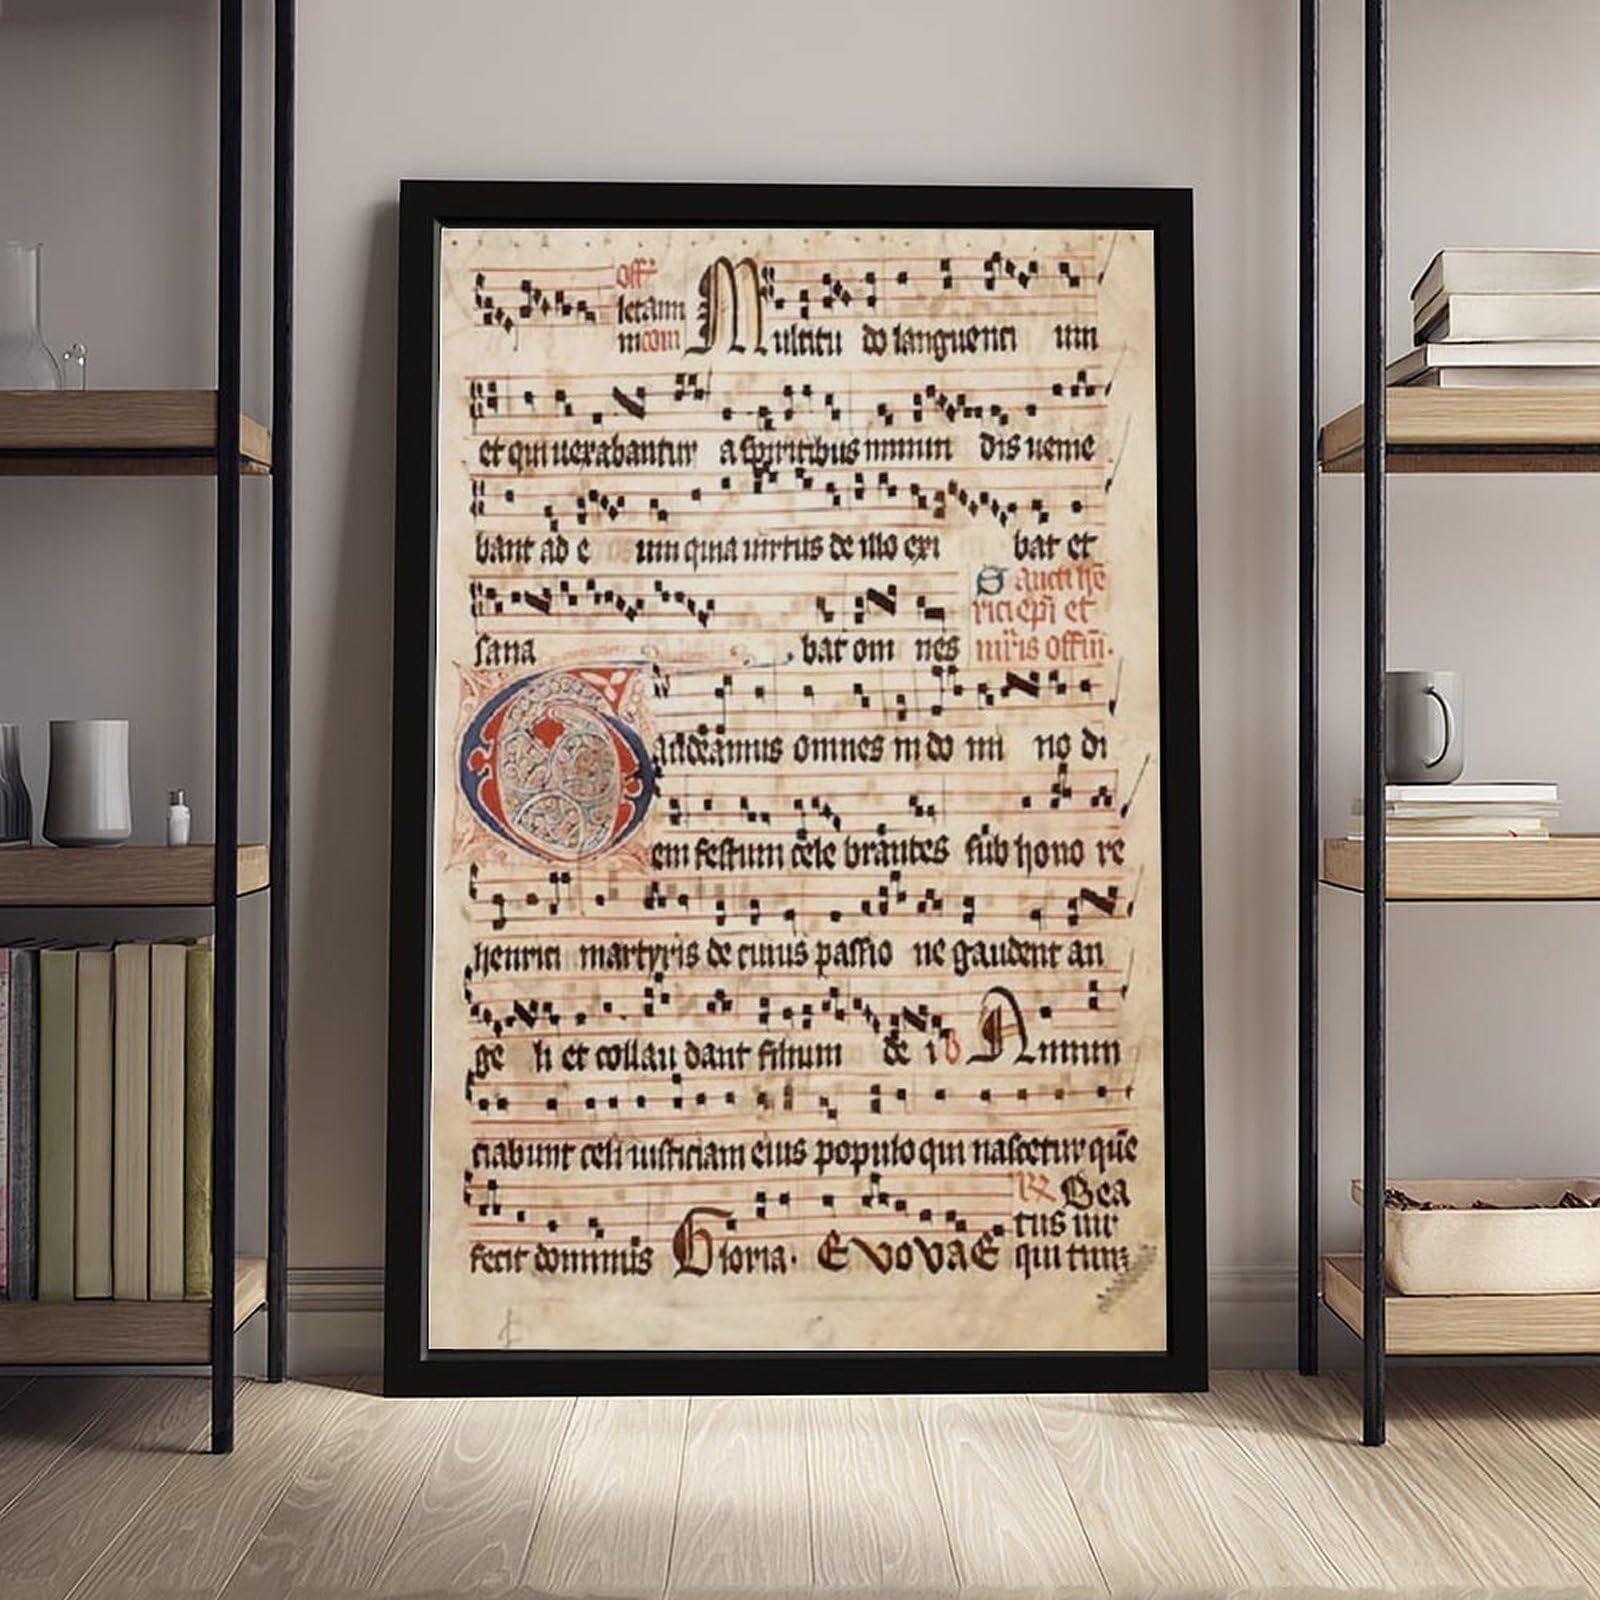 offᵐ
letamini
m com
Multitu do languenti um
et qui uexabantur a spiritibus inmun dis uenie
bant ad e um quia uirtus de illo exi bat et
sana bat om nes
Sancti hē
rici ep̄i et
mr̄is offiū.
Gaudeamus omnes in do mi no di
em festum cele brantes sub hono re
henrici martyris de cuius passio ne gaudent an
ge li et collau dant filium de i Annun
ciabunt celi iusticiam eius populo qui nascetur quē
fecit dominus Gloria. EvovaE
Bea
tus uir
qui tim